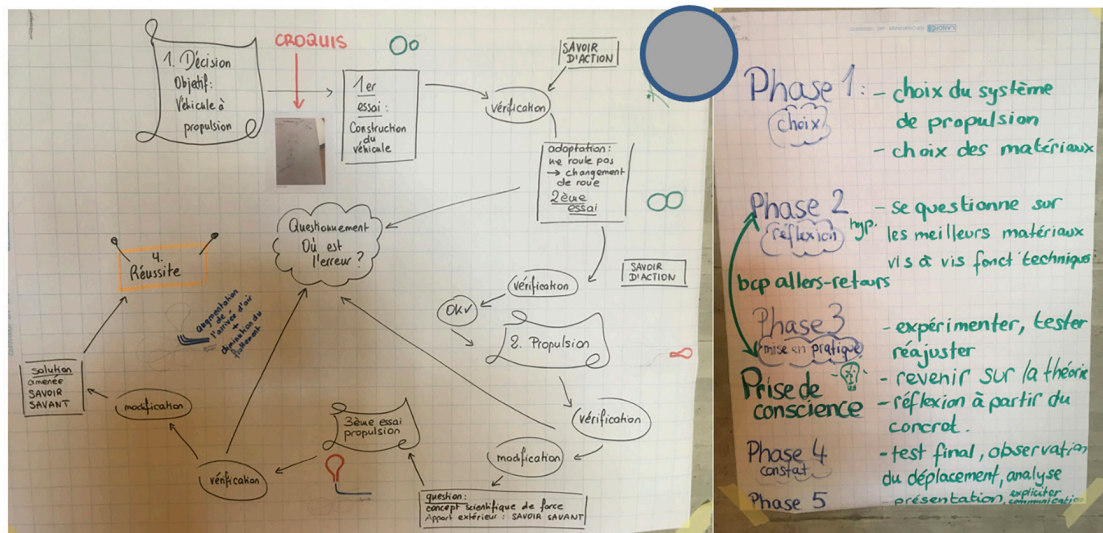 1. Décision
Objectif:
Véhicule à
propulsion
CROQUIS
1er
essai:
Construction
du
véhicule
SAVOIR
D'ACTION
vérification
adaptation:
ne roule pas
→ changement
de roue
2ème
essai
Questionnement
Où est
l'erreur?
4.
Réussite
SAVOIR
D'ACTION
vérification
OK√
2. Propulsion
augmentation
de
l'arrivée d'air
+
diminution du
frottement
solution
amenée
SAVOIR
SAVANT
modification
3ème essai
propulsion
vérification
modification
vérification
question:
concept scientifique de force
Apport extérieur: SAVOIR SAVANT
Phase 1:
choix
- choix du système
de propulsion
- choix des matériaux
Phase 2
réflexion
hyp.
- se questionne sur
les meilleurs matériaux
vis à vis fonct technique
bcp allers-retours
Phase 3
mise en pratique
- expérimenter, tester
réajuster
Prise de
conscience
- revenir sur la théorie
- réflexion à partir du
concret.
Phase 4
constat
- test final, observation
du déplacement, analyse
Phase 5
présentation, expliciter
communication